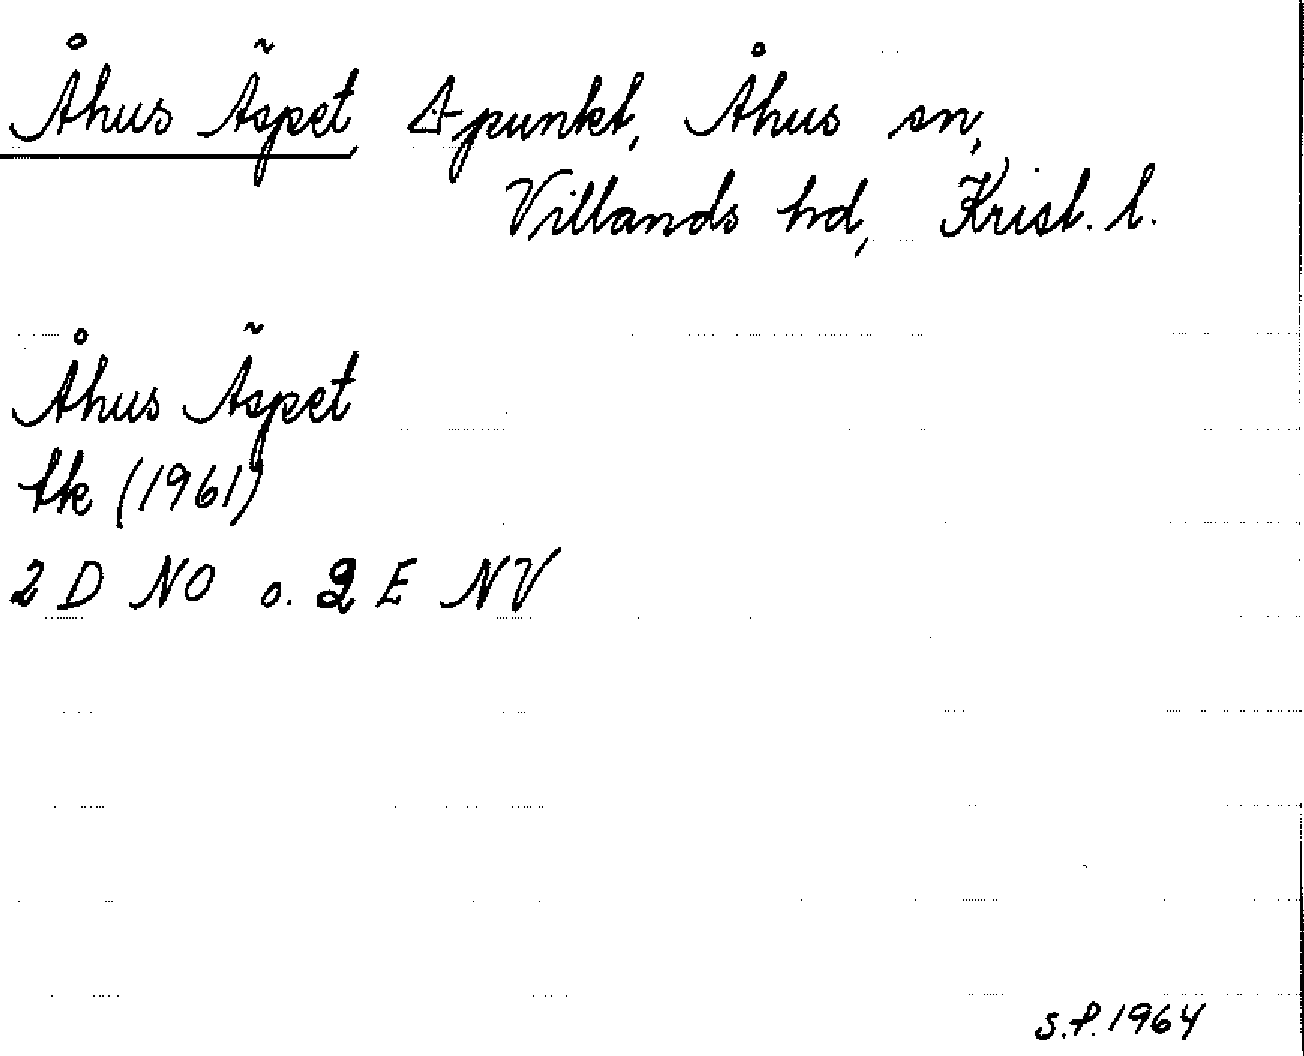 Åhus Äspet, △-punkt, Åhus sn,
Villands hd, Krist. l.
Åhus Äspet
tk (1961)
2 D NO o. 2 E NV
S.P. 1964